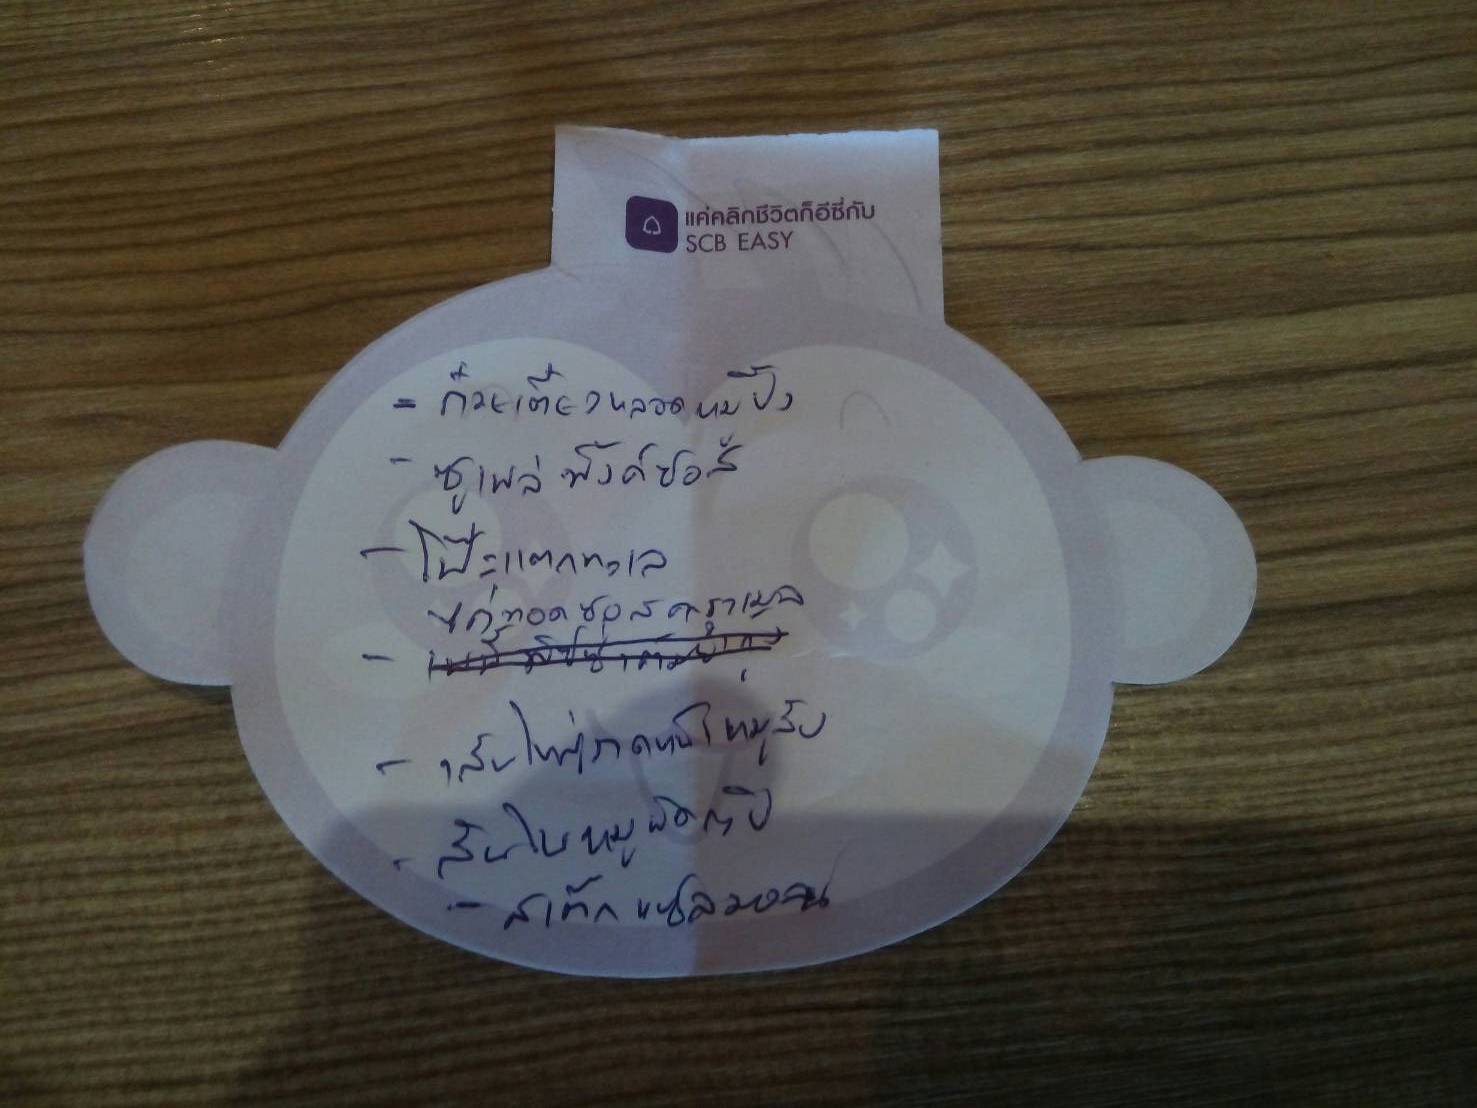 แค่คลิกชีวิตก็อีซี่กับ
SCB EASY
- ก๋วยเตี๋ยวหลอดหมปิ้ง
- ซูเฟล่ พิ้งค์ซอส
- โป๊ะแตกทะเล
ไก่ทอดซอสคาราเมล
-
- เส้นใหญ่ราดหน้าหมูสับ
- หมูผัดกะปิ
- สเต๊กแซลมอน